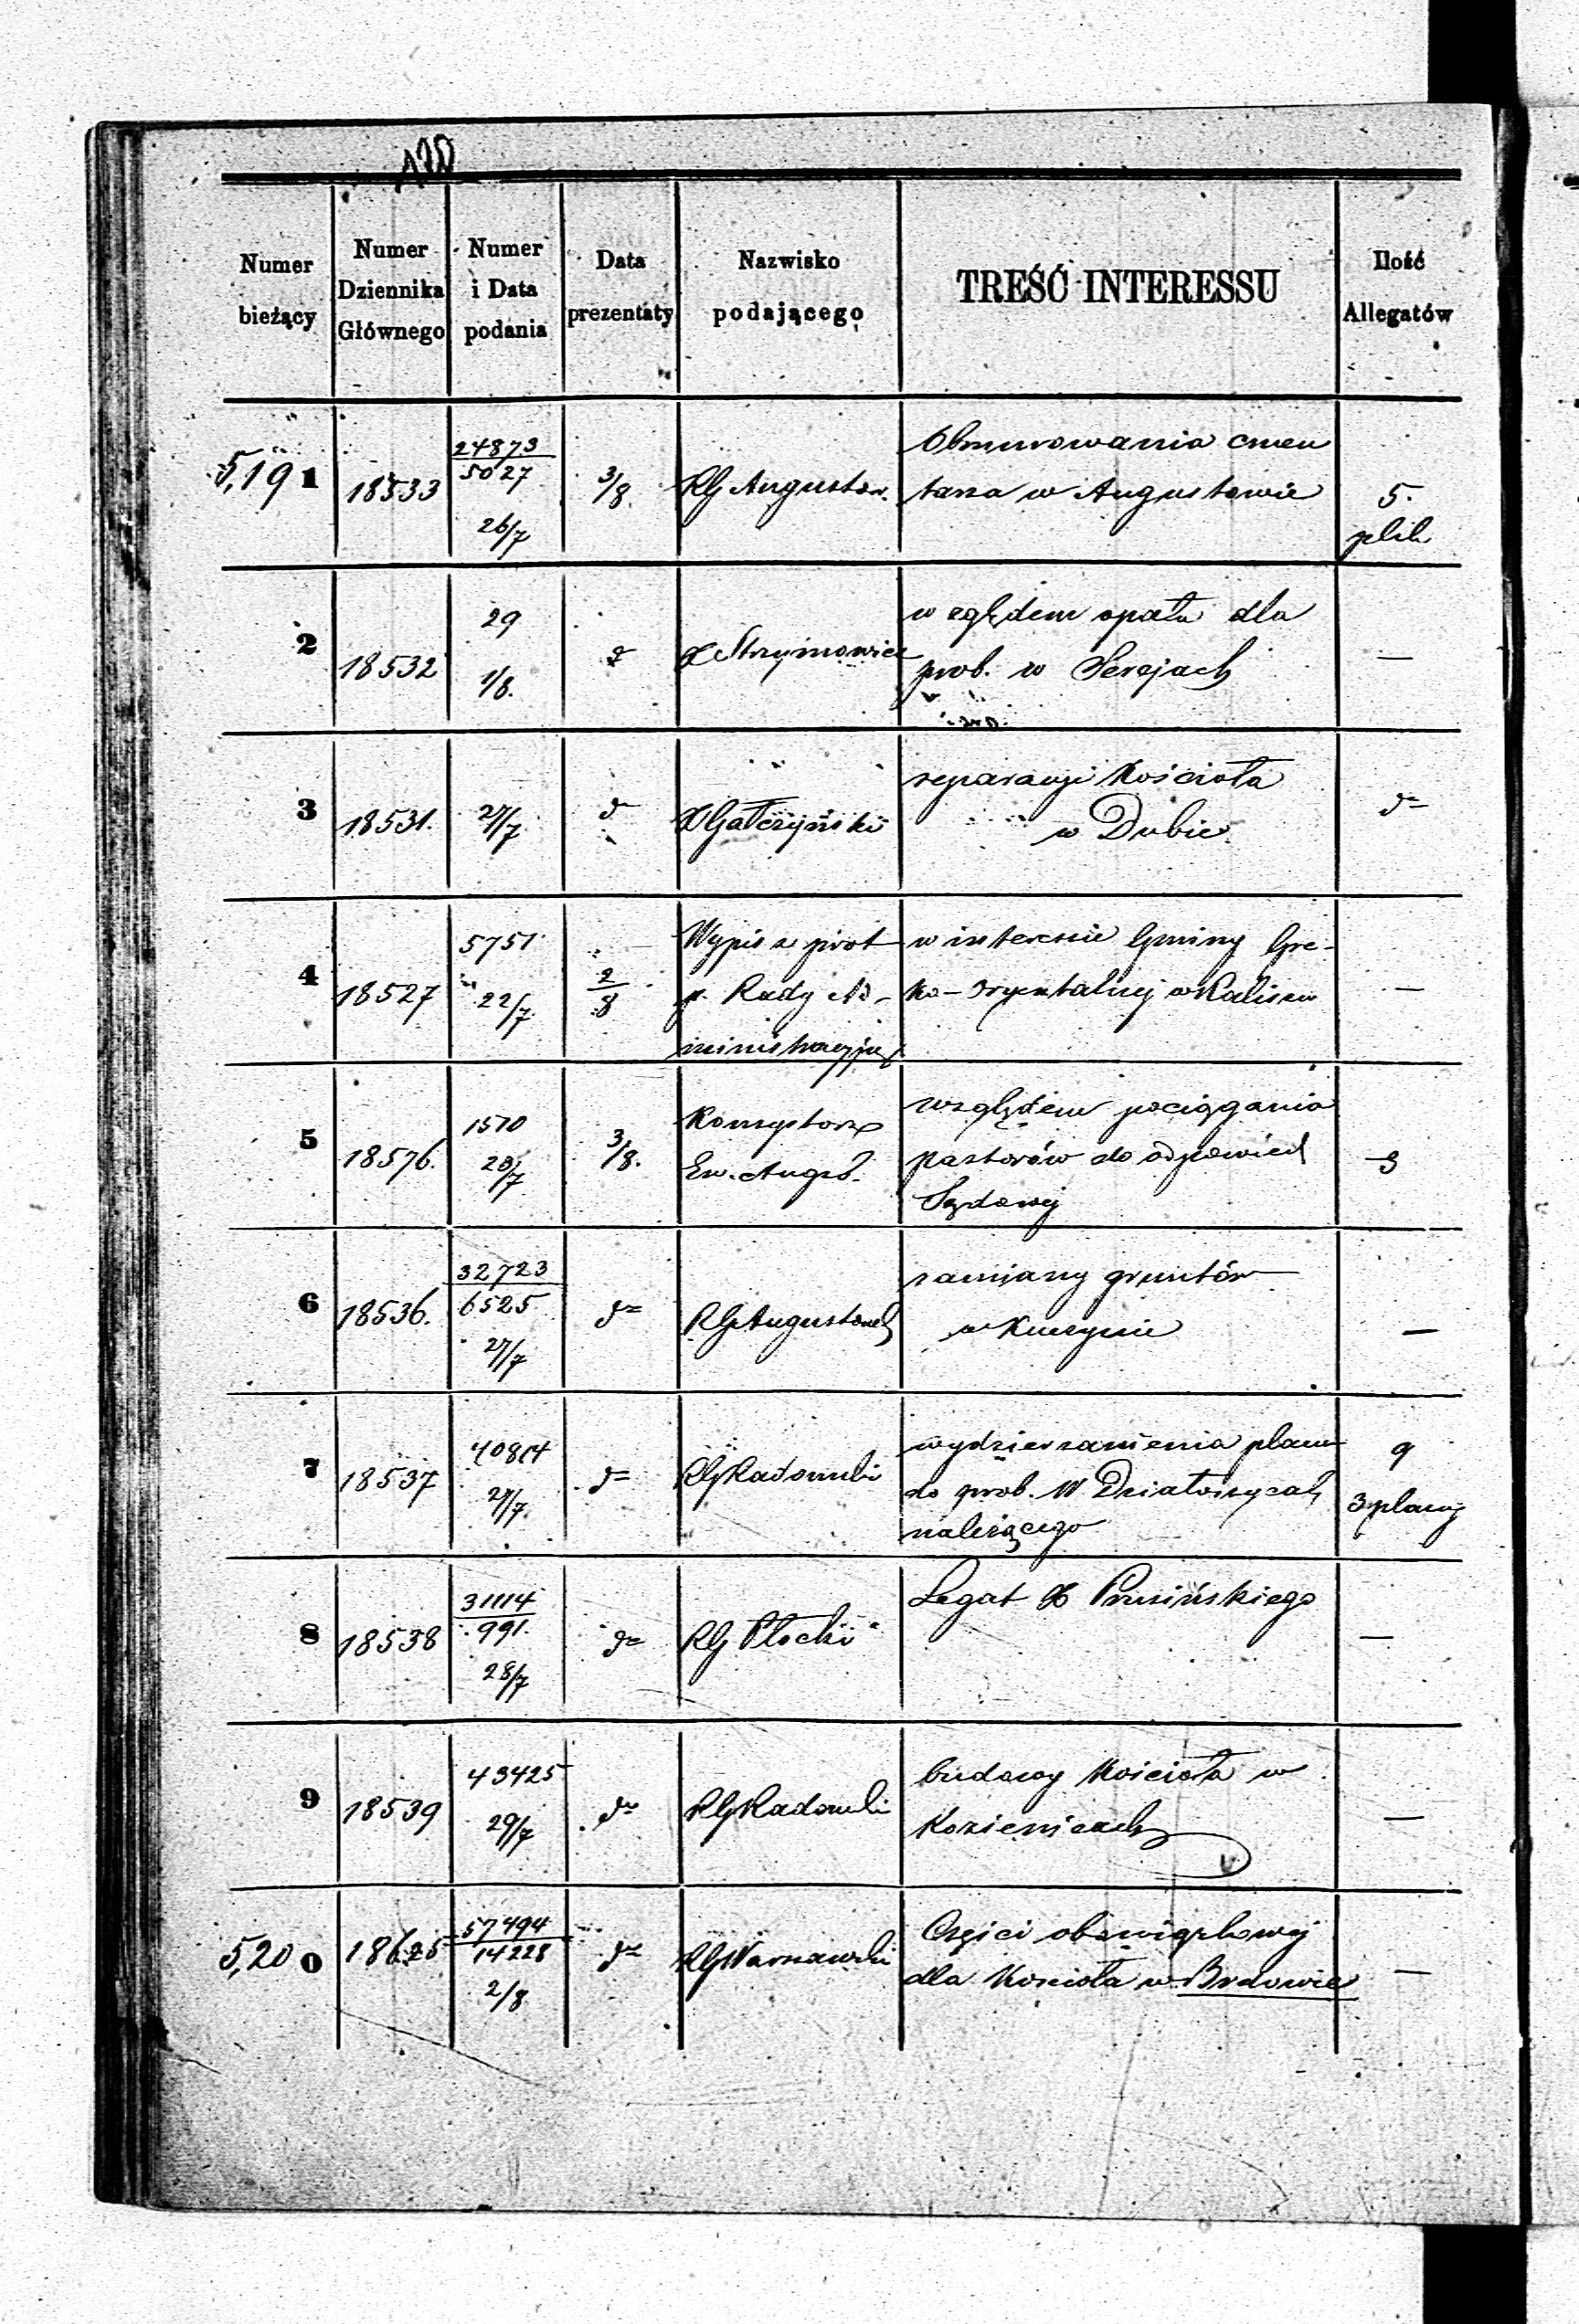 120
Numer bieżący
Numer Dziennika Głównego
Numer i Data podania
Data prezentaty
Nazwisko podającego
TREŚĆ INTERESSU
Ilość Allegatów
5,191
18533
24873
5027
26/7
3/8.
RG Augustow.
Obmurowania cmen
tarza w Augustowie
5.
plik
2
18532
29
1/8.
X Strzymowicz
względem opału dla
prob. w Serejach
—
3
18531.
27/7
d
X Gałczyński
reparacyi Kościoła
w Dubie
d=
4
18527
5751
22/7.
2/8
Wypis z prot
p. Rady Ad-
ministracyjnej
w interessie Gminy Gre-
ko-oryentalnej w Kaliszu
—
5
18576.
1570
28/7
3/8.
Konsystorz
Ew. Augsb.
względem pociągania
pastorów do odpowied
Sądowej
3
6
18536.
32723
6525
27/7
d=
RG Augustowsk
zamiany gruntów
w
—
7
18537
40814
27/7.
d=
RG Radomski
wydzierzawienia placu
do prob. W Działoszycach
należącego
9
3 plany
8
18538
31114
991.
28/7
d=
RG Płocki
Legat X Prusińskiego
—
9
18539
43425
29/7
d=
RG Radomski
budowy Kościoła w
Kozienicach
—
5,200
18625
57494
14228
2/8
d=
RG Warszawski
Części obowiązkowej
dla Kościoła w Brdowie
—